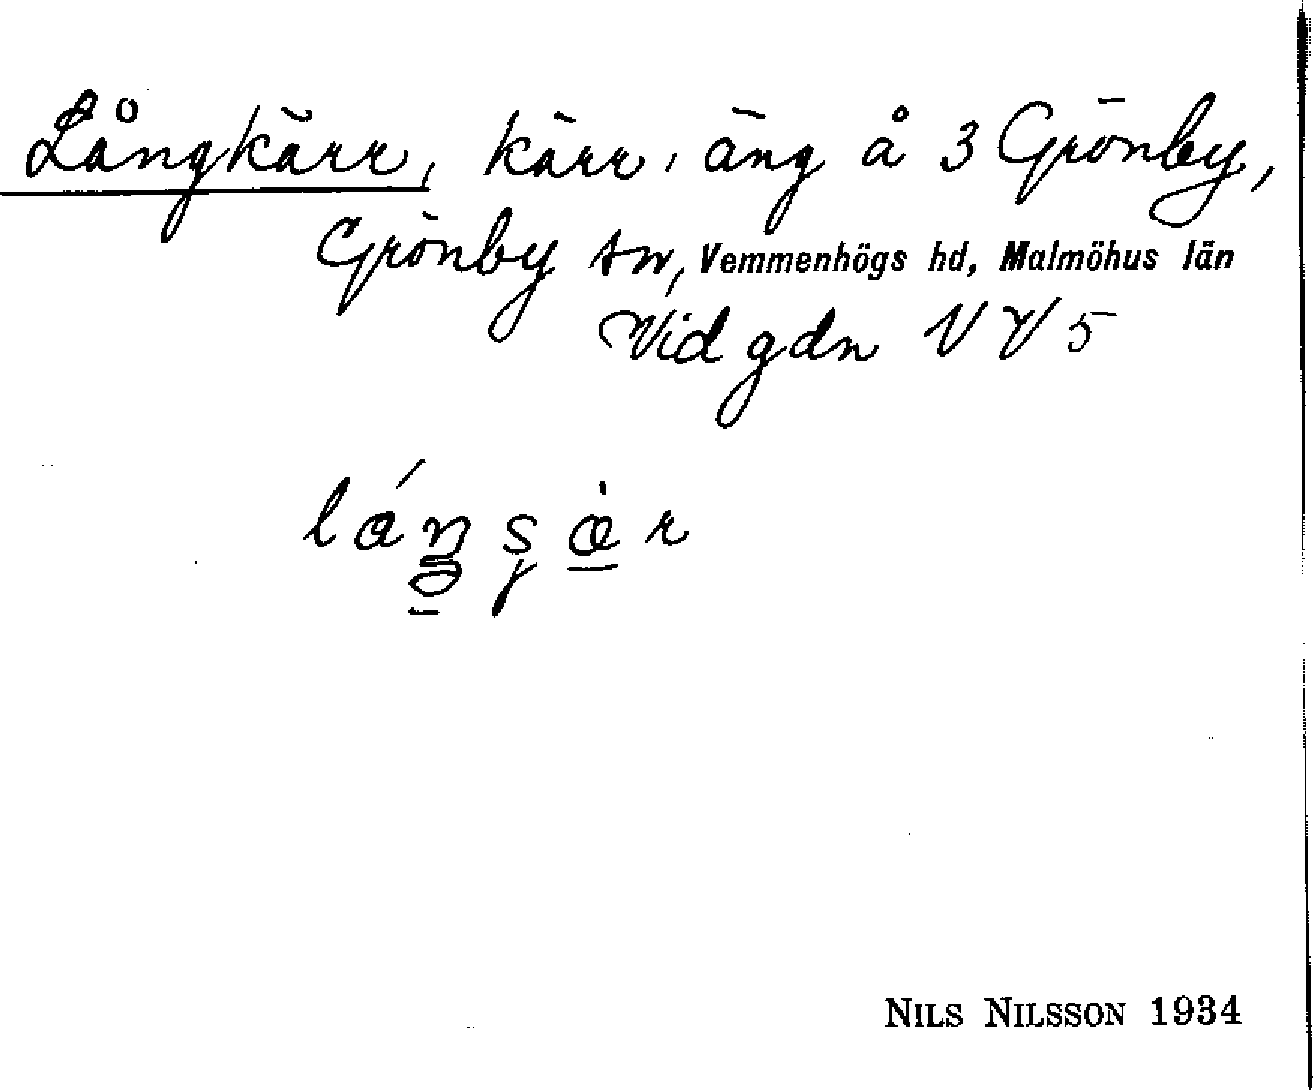 Långkärr, kärr, äng å 3 Grönby,
Grönby sn, Vemmenhögs hd, Malmöhus län
Vid gdn VV5
NILS NILSSON 1934